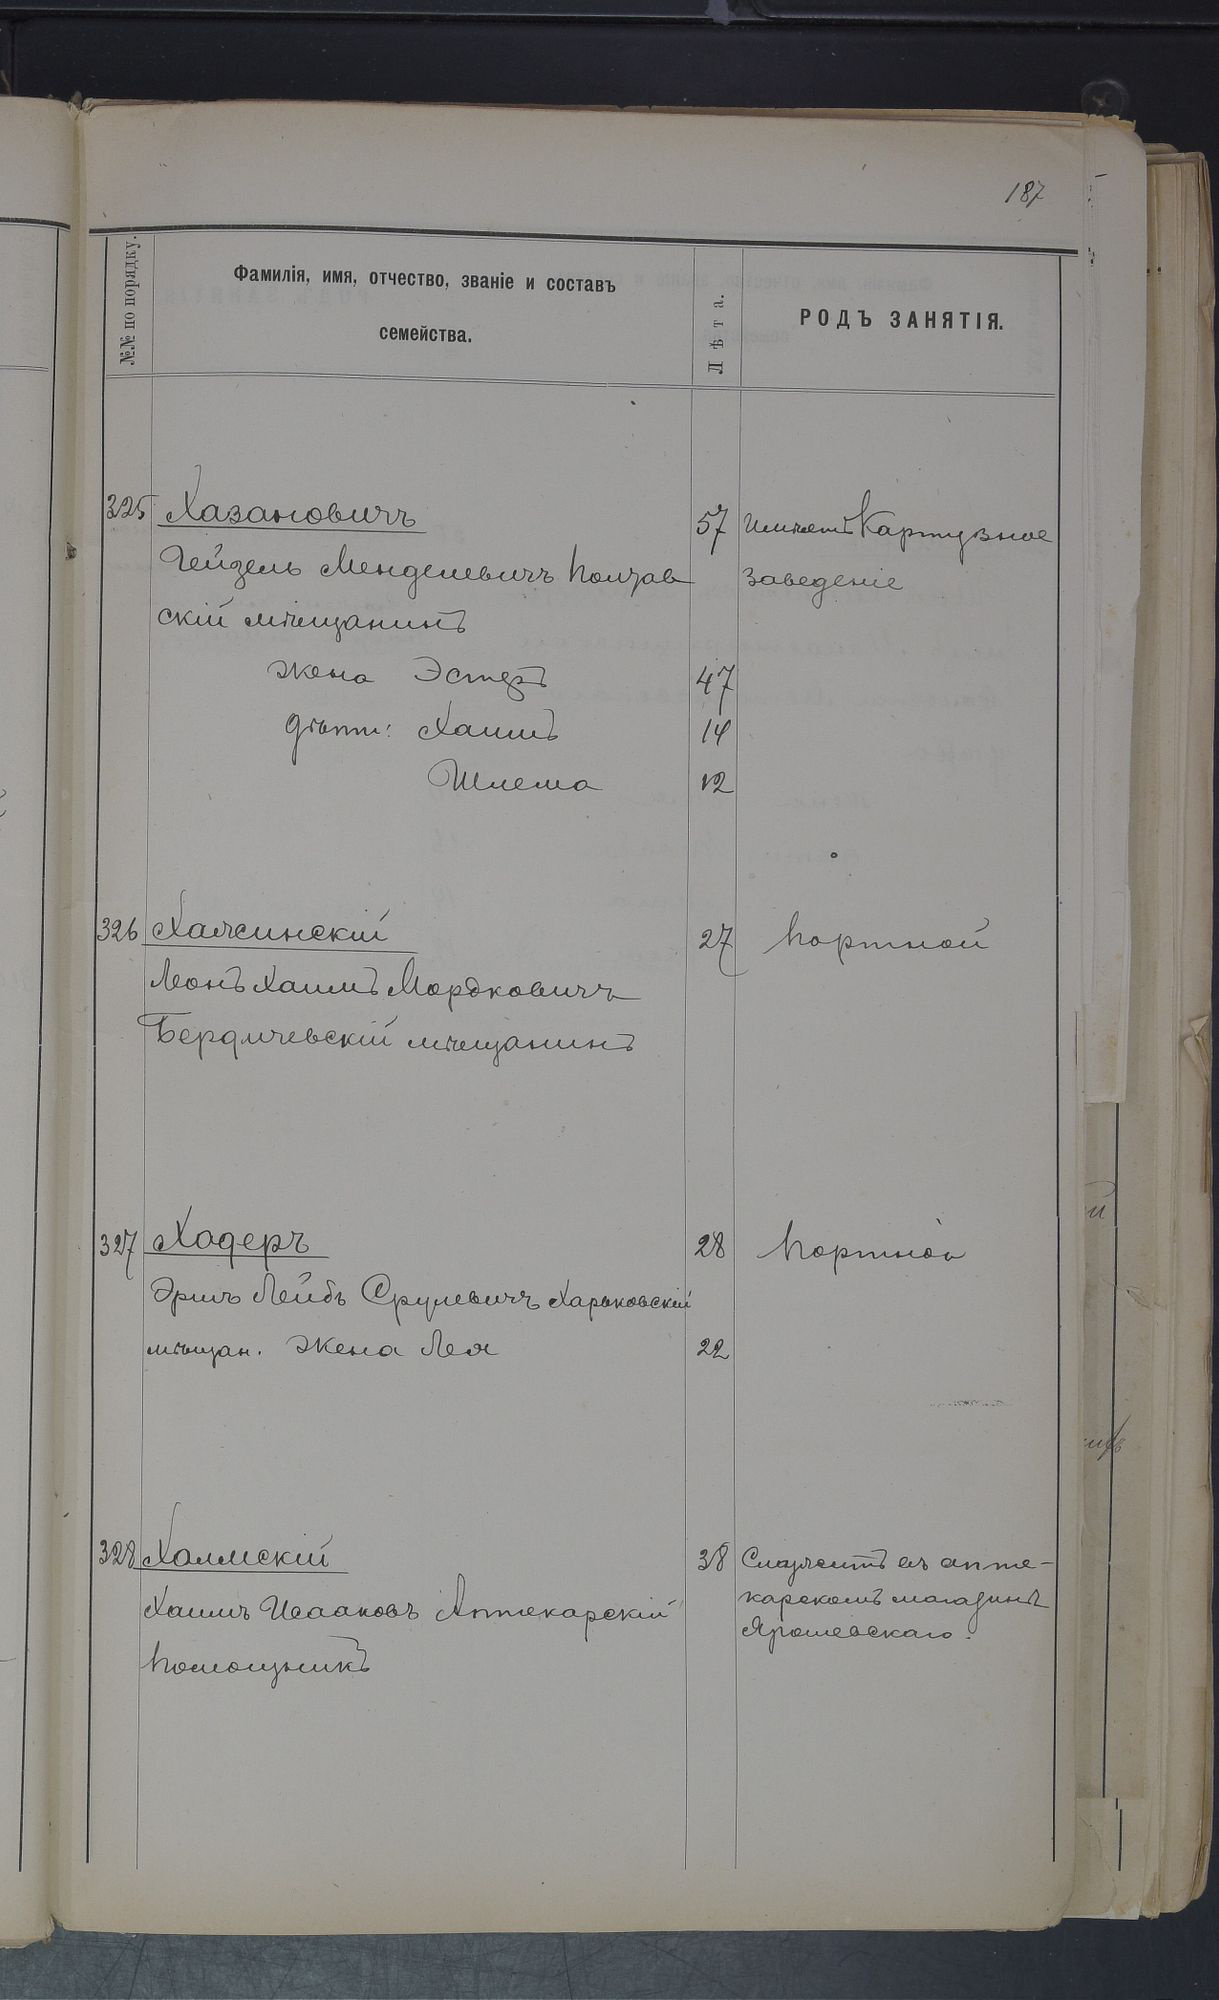 187
№№ по порядку.
Фамилія, имя, отчество, званіе и составъ
семейства.
Лѣта.
РОДЪ ЗАНЯТІЯ.
325 Хазановичъ 57 Имѣетъ Картузное
Гейзель Менделевичъ Полтав заведеніе
скій мѣщанинъ
жена Эстеръ 47
дѣти: Хаимъ 14
Шлема 12
326 27 Портной
Леонъ Хаимъ Мордковичъ
Бердичевскій мѣщанинъ
327 Ходеръ 28 Портной
Эршъ Лейбъ Срулевичъ Харьковскій
мѣщан. Жена Лея 22
328 Холмскій 38 Служитъ въ апте-
Хаимъ Исааковъ Аптекарскій карскомъ магазинѣ
Помощникъ Ярошевскаго.